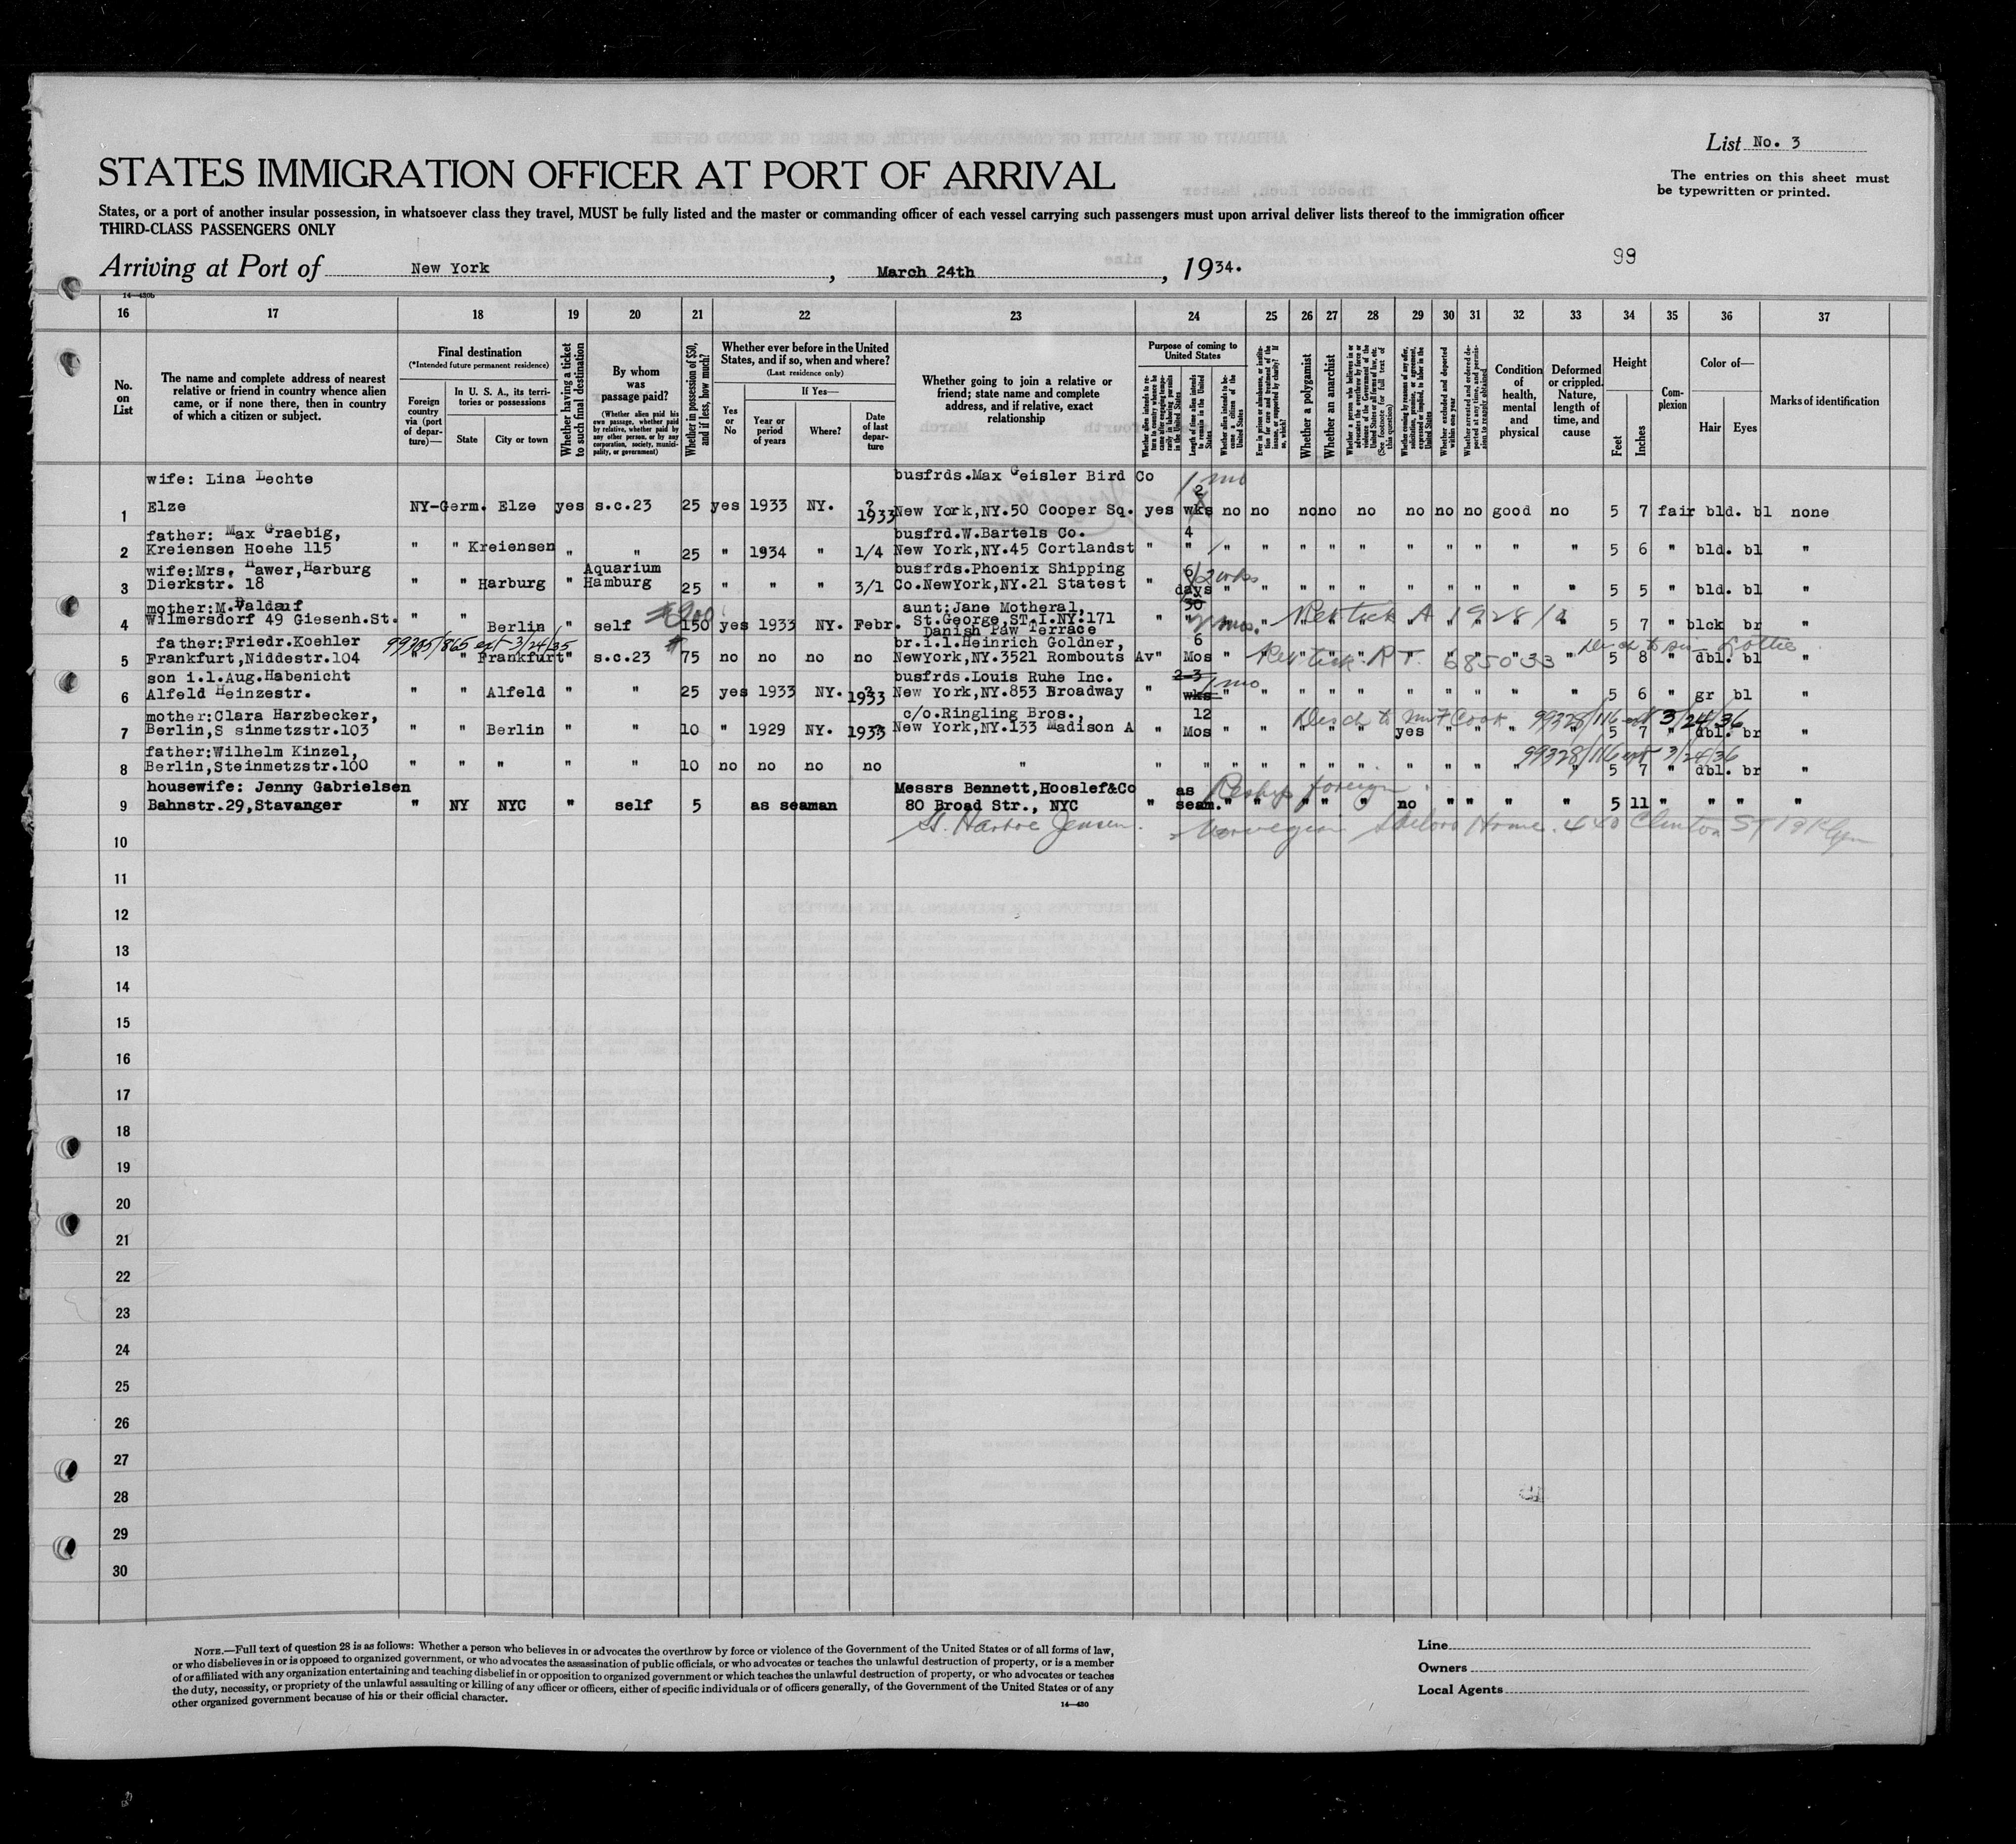 List No. 3
STATES IMMIGRATION OFFICER AT PORT OF ARRIVAL
The entries on this sheet must
be typewritten or printed.
States, or a port of another insular possession, in whatsoever class they travel, MUST be fully listed and the master or commanding officer of each vessel carrying such passengers must upon arrival deliver lists thereof to the immigration officer
THIRD-CLASS PASSENGERS ONLY
99
Arriving at Port of New York, March 24th, 1934.
14—430b
16 17 18 19 20 21 22 23 24 25 26 27 28 29 30 31 32 33 34 35 36 37
No. on List
The name and complete address of nearest relative or friend in country whence alien came, or if none there, then in country of which a citizen or subject.
Final destination
(*Intended future permanent residence)
Foreign country via (port of departure)—
In U. S. A., its territories or possessions
State
City or town
Whether having a ticket to such final destination
By whom was passage paid?
(Whether alien paid his own passage, whether paid by relative, whether paid by any other person, or by any corporation, society, municipality, or government)
Whether in possession of $50, and if less, how much?
Whether ever before in the United States, and if so, when and where?
(Last residence only)
Yes or No
If Yes—
Year or period of years
Where?
Date of last departure
Whether going to join a relative or friend; state name and complete address, and if relative, exact relationship
Purpose of coming to United States
Length of time alien intends to remain in the United States
Whether alien intends to become a citizen of the United States
Whether a polygamist
Whether an anarchist
(See footnote for full text of this question)
Whether excluded and deported within one year
Condition of health, mental and physical
Deformed or crippled. Nature, length of time, and cause
Height
Feet
Inches
Complexion
Color of—
Hair
Eyes
Marks of identification
wife: Lina Lechte busfrds.Max Geisler Bird Co 1 mo
1 Elze NY-Germ. Elze yes s.c.23 25 yes 1933 NY. ? 1933 New York,NY.50 Cooper Sq. yes 2 wks no no no no no no no no good no 5 7 fair bld. bl none
father: Max Graebig, busfrd.W.Bartels Co. 4
2 Kreiensen Hoehe 115 " " Kreiensen " " 25 " 1934 " 1/4 New York,NY.45 Cortlandst " " " " " " " " " " " " 5 6 " bld. bl "
wife:Mrs. Hawer,Harburg Aquarium busfrds.Phoenix Shipping 6 2 wks
3 Dierkstr. 18 " " Harburg " Hamburg 25 " " " 3/1 Co.NewYork,NY.21 Statest " days " " " " " " " " " " 5 5 " bld. bl "
mother:M.Valdauf $200 aunt: Jane Motheral, 30
4 Wilmersdorf 49 Giesenh.St. " " Berlin " self 150 yes 1933 NY. Febr. St.George,ST.I.NY.171 " 2 mos. " " " " " " " " " " 5 7 " blck br "
Danish Paw Terrace
father:Friedr.Koehler 99335/865 ext 3/24/35 br.i.l.Heinrich Goldner, 6
5 Frankfurt,Niddestr.104 " " Frankfurt " s.c.23 75 no no no no NewYork,NY.3521 Rombouts Av " Mos " 685033 " 5 8 " dbl. bl "
son i.l.Aug.Habenicht busfrds. Louis Ruhe Inc. 2-3 1 mo
6 Alfeld Heinzestr. " " Alfeld " " 25 yes 1933 NY. ? 1933 New York,NY.853 Broadway " wks " " " " " " " " " " 5 6 " gr bl "
mother:Clara Harzbecker, c/o.Ringling Bros., 12 99328/116 ext 3/24/36
7 Berlin,S sinmetzstr.103 " " Berlin " " 10 " 1929 NY. 1933 New York,NY.133 Madison A " Mos " " " " " yes " " " " 5 7 " dbl. br "
father:Wilhelm Kinzel, 99328/116 ext 3/24/36
8 Berlin,Steinmetzstr.100 " " " " " 10 no no no no " " " " " " " " " " " " " 5 7 " dbl. br "
housewife: Jenny Gabrielsen Messrs Bennett,Hooslef&Co as Reship foreign
9 Bahnstr.29,Stavanger " NY NYC " self 5 as seaman 80 Broad Str., NYC " seam. " " " " " no " " " " 5 11 " " " "
Jensen. Norwegian Sailors Home. 440 Clinton ST Bklyn
10
11
12
13
14
15
16
17
18
19
20
21
22
23
24
25
26
27
28
29
30
NOTE.—Full text of question 28 is as follows: Whether a person who believes in or advocates the overthrow by force or violence of the Government of the United States or of all forms of law,
or who disbelieves in or is opposed to organized government, or who advocates the assassination of public officials, or who advocates or teaches the unlawful destruction of property, or is a member
of or affiliated with any organization entertaining and teaching disbelief in or opposition to organized government or which teaches the unlawful destruction of property, or who advocates or teaches
the duty, necessity, or propriety of the unlawful assaulting or killing of any officer or officers, either of specific individuals or of officers generally, of the Government of the United States or of any
other organized government because of his or their official character.
14—430
Line
Owners
Local Agents